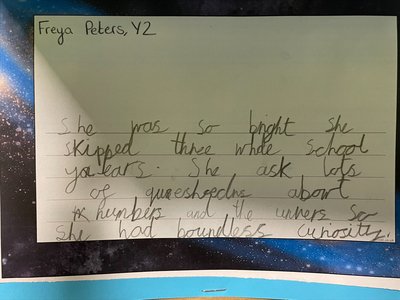 Freya Peters, Y2
She was so bright she
skipped three whole school
yaears. She ask lots
of queeshedns about
numbers and the unners so
she had boundless curiosity.